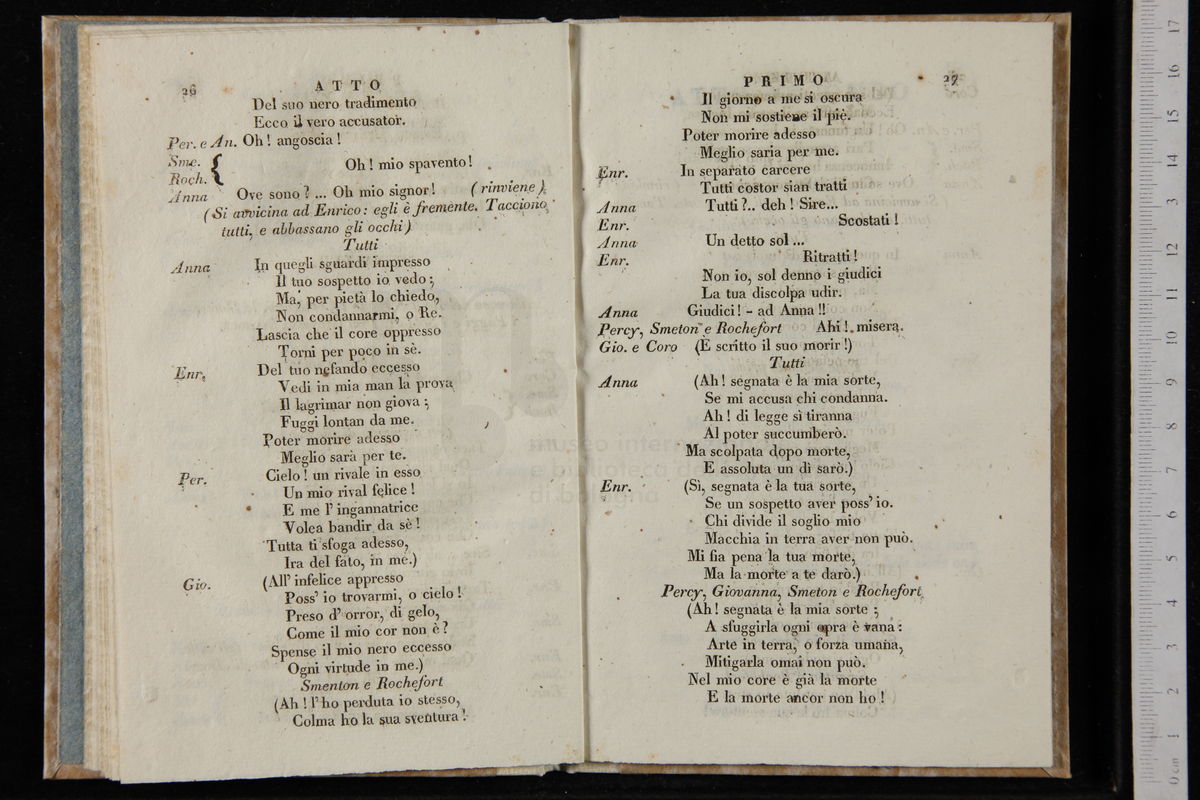 26 ATTO
Del suo nero tradimento
Ecco il vero accusator.
Per. e An. Oh! angoscia!
Sme. { Oh! mio spavento!
Roch.
Anna Ove sono? ... Oh mio signor! (rinviene)
(Si avvicina ad Enrico: egli è fremente. Tacciono
tutti, e abbassano gli occhi)
Tutti
Anna In quegli sguardi impresso
Il tuo sospetto io vedo;
Ma, per pietà lo chiedo,
Non condannarmi, o Re.
Lascia che il core oppresso
Torni per poco in sè.
Enr. Del tuo nefando eccesso
Vedi in mia man la prova
Il lagrimar non giova;
Fuggi lontan da me.
Poter morire adesso
Meglio sarà per te.
Per. Cielo! un rivale in esso
Un mio rival felice!
E me l' ingannatrice
Volea bandir da sè!
Tutta ti sfoga adesso,
Ira del fato, in me.)
Gio. (All' infelice appresso
Poss' io trovarmi, o cielo!
Preso d' orror, di gelo,
Come il mio cor non è?
Spense il mio nero eccesso
Ogni virtude in me.)
Smenton e Rochefort
(Ah! l' ho perduta io stesso,
Colma ho la sua sventura!
PRIMO 27
Il giorno a me si oscura
Non mi sostiene il piè.
Poter morire adesso
Meglio saria per me.
Enr. In separato carcere
Tutti costor sian tratti
Anna Tutti?.. deh! Sire...
Enr. Scostati!
Anna Un detto sol...
Enr. Ritratti!
Non io, sol denno i giudici
La tua discolpa udir.
Anna Giudici! - ad Anna!!
Percy, Smeton e Rochefort Ahi!. misera.
Gio. e Coro (È scritto il suo morir!)
Tutti
Anna (Ah! segnata è la mia sorte,
Se mi accusa chi condanna.
Ah! di legge sì tiranna
Al poter succumberò.
Ma scolpata dopo morte,
E assoluta un dì sarò.)
Enr. (Sì, segnata è la tua sorte,
Se un sospetto aver poss' io.
Chi divide il soglio mio
Macchia in terra aver non può.
Mi fia pena la tua morte,
Ma la morte a te darò.)
Percy, Giovanna, Smeton e Rochefort
(Ah! segnata è la mia sorte;
A sfuggirla ogni opra è vana:
Arte in terra, o forza umana,
Mitigarla omai non può.
Nel mio core è già la morte
E la morte ancor non ho!